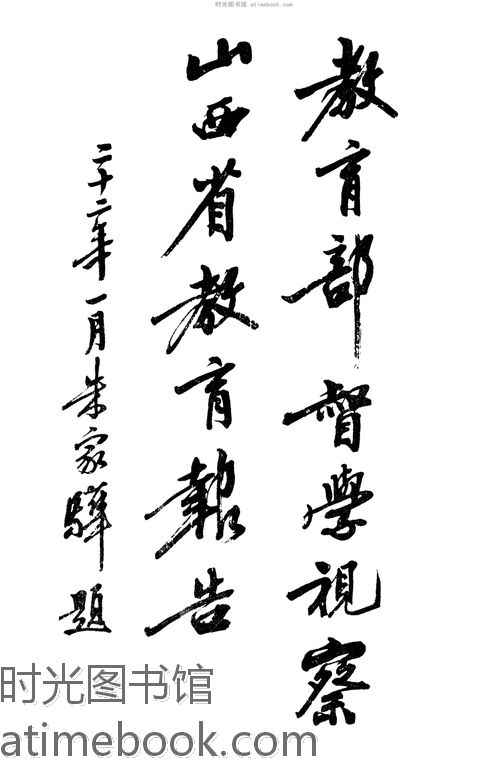 时光图书馆 atimebook.com
教育部督學視察
山西省教育報告
二十二年一月朱家驊題
时光图书馆
atimebook.com